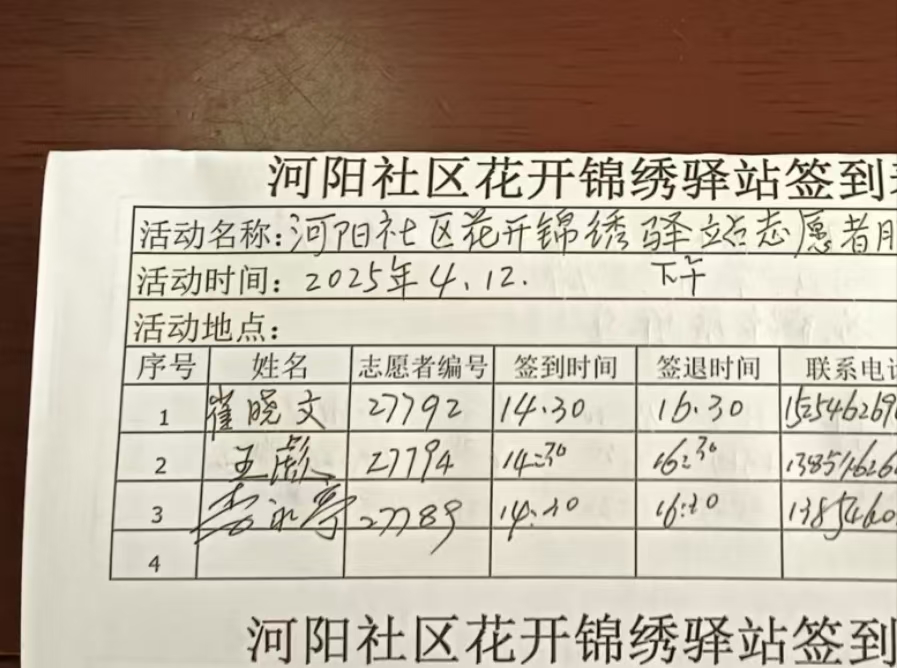 河阳社区花开锦绣驿站签到
活动名称:河阳社区花开锦绣驿站志愿者
活动时间: 2025年4.12. 下午
活动地点:
序号 姓名 志愿者编号 签到时间 签退时间 联系电
1 崔晓文 27792 14.30 16.30 15546269
2 王彪 27794 14:30 16:30
3 27789 14:30 16:30
4
河阳社区花开锦绣驿站签到